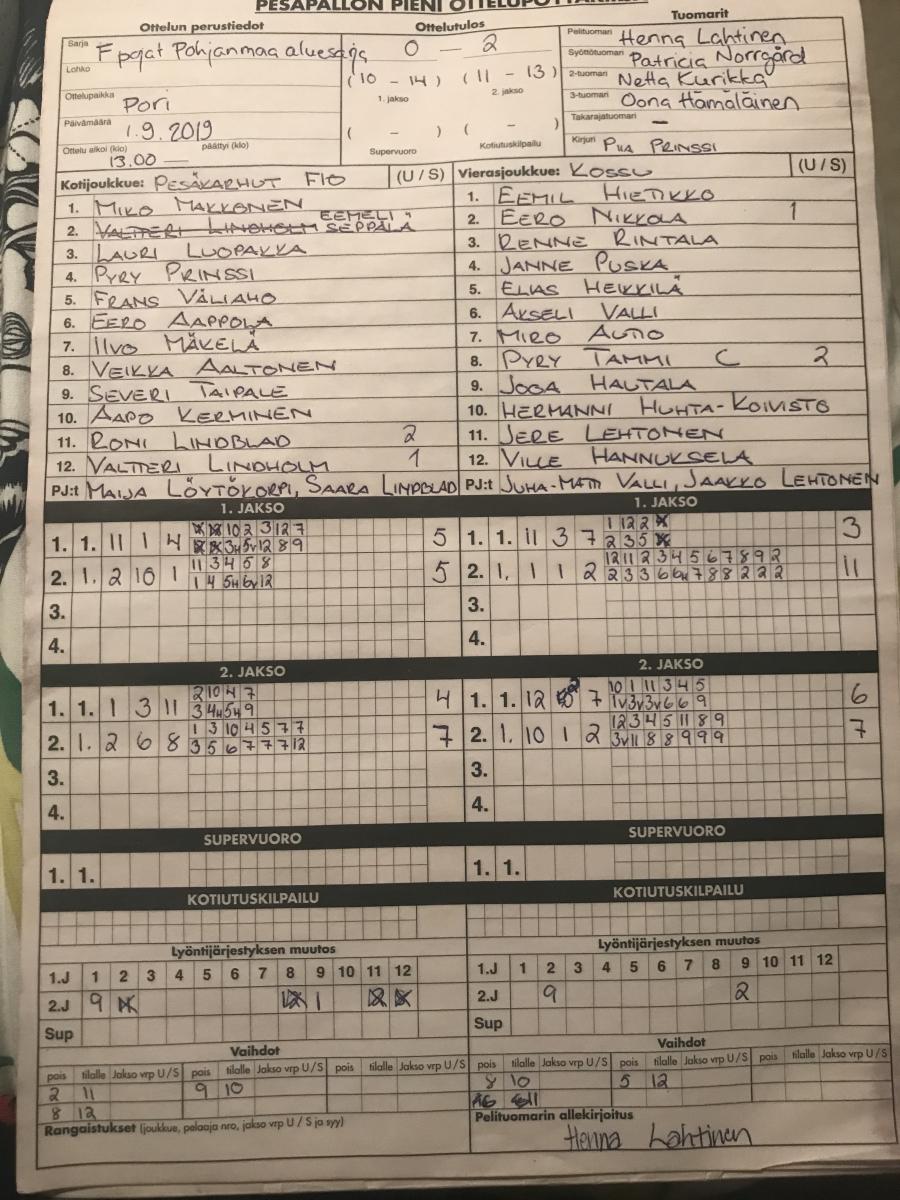 PESÄPALLON PIENI
Ottelun perustiedot
Sarja F pojat Pohjanmaa aluesarja
Lohko
Ottelupaikka Pori
Päivämäärä 1.9.2019
Ottelu alkoi (klo) 13.00 — päättyi (klo)
Ottelutulos
0 – 2
(10 – 14) (11 – 13)
1. jakso 2. jakso
( – ) ( – )
Supervuoro Kotiutuskilpailu
Tuomarit
Pelituomari Henna Lahtinen
Syöttötuomari Patricia Norrgård
2-tuomari Netta Kurikka
3-tuomari Oona Hämäläinen
Takarajatuomari —
Kirjuri PIIA PRINSSI
Kotijoukkue: PESÄKARHUT F10 (U / S)
1. MIKO MAKKONEN
2. VALTTERI LINDHOLM EEMELI SEPPÄLÄ
3. LAURI LUOPAKKA
4. PYRY PRINSSI
5. FRANS VÄLIAHO
6. EERO AAPPOLA
7. IIVO MÄKELÄ
8. VEIKKA AALTONEN
9. SEVERI TAIPALE
10. AAPO KERMINEN
11. RONI LINDBLAD 2
12. VALTTERI LINDHOLM 1
PJ:t MAIJA LÖYTÖKORPI, SAARA LINDBLAD
Vierasjoukkue: KOSSU (U / S)
1. EEMIL HIETIKKO
2. EERO NIKKOLA 1
3. RENNE RINTALA
4. JANNE PUSKA
5. ELIAS HEIKKILÄ
6. AKSELI VALLI
7. MIRO AUTIO
8. PYRY TAMMI C 2
9. JOGA HAUTALA
10. HERMANNI HUHTA-KOIVISTO
11. JERE LEHTONEN
12. VILLE HANNUKSELA
PJ:t JUHA-MATTI VALLI, JAAKKO LEHTONEN
1. JAKSO
1. 1. 11 1 4 10 2 3 12 7 5
3H 5V 12 8 9
2. 1. 2 10 1 11 3 4 5 8 5
1 4 5H 6V 12
3.
4.
1. JAKSO
1. 1. 11 3 7 1 12 2 3
2 3 5
2. 1. 1 1 2 12 11 2 3 4 5 6 7 8 9 2 11
2 3 3 6 6H 7 8 8 2 2 2
3.
4.
2. JAKSO
1. 1. 1 3 11 2 10 4 7 4
3 4H 5H 9
2. 1. 2 6 8 1 3 10 4 5 7 7 7
3 5 6 7 7 7 12
3.
4.
2. JAKSO
1. 1. 12 7 10 1 11 3 4 5 6
1V 3V 3V 6 6 9
2. 1. 10 1 2 12 3 4 5 11 8 9 7
3V 11 8 8 9 9 9
3.
4.
SUPERVUORO
1. 1.
SUPERVUORO
1. 1.
KOTIUTUSKILPAILU
KOTIUTUSKILPAILU
Lyöntijärjestyksen muutos
1.J 1 2 3 4 5 6 7 8 9 10 11 12
2.J 9 1
Sup
Lyöntijärjestyksen muutos
1.J 1 2 3 4 5 6 7 8 9 10 11 12
2.J 9 2
Sup
Vaihdot
pois tilalle Jakso vrp U / S pois tilalle Jakso vrp U / S pois tilalle Jakso vrp U / S
2 11 9 10
8 12
Rangaistukset (joukkue, pelaaja nro, jakso vrp U / S ja syy)
Vaihdot
pois tilalle Jakso vrp U / S pois tilalle Jakso vrp U / S pois tilalle Jakso vrp U / S
8 10 5 12
Pelituomarin allekirjoitus
Henna Lahtinen